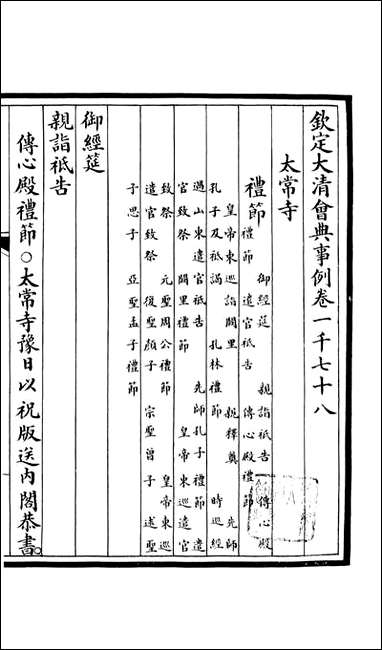 欽定大清會典事例卷一千七十八
太常寺
禮節
御經筵 親詣祗告 傳心殿
禮節 遣官祗告 傳心殿禮節
皇帝東巡詣闕里 親釋奠 先師
孔子及祗謁 孔林禮節 時巡經
過山東遣官祗告 先師孔子禮節 遣
官致祭 闕里禮節 皇帝東巡遣官
致祭 元聖周公禮節 皇帝東巡
遣官致祭 復聖顏子 宗聖曾子 述聖
子思子 亞聖孟子禮節
御經筵
親詣祗告
傳心殿禮節○太常寺豫日以祝版送內閣恭書